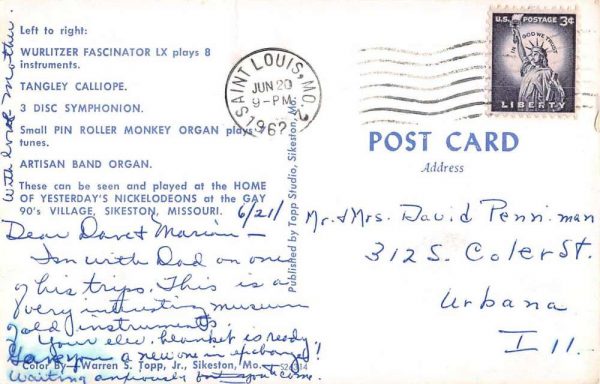 Left to right:
WURLITZER FASCINATOR LX plays 8
instruments.
TANGLEY CALLIOPE.
3 DISC SYMPHONION.
Small PIN ROLLER MONKEY ORGAN plays
tunes.
ARTISAN BAND ORGAN.
These can be seen and played at the HOME
OF YESTERDAY'S NICKELODEONS at the GAY
90's VILLAGE, SIKESTON, MISSOURI.
6/21/
Dear Dave & Marion –
I'm with Dad on one
of his trips. This is a
very interesting museum
of old instruments.
Your elec. blanket is ready!
Gave you a new one in exchange!
Color By Warren S. Topp, Jr., Sikeston, Mo.
Waiting anxiously you come.
With love Mother.
Published by Topp Studio, Sikeston, Mo.
SAINT LOUIS, MO.
JUN 20
9-PM
196
U.S. POSTAGE 3¢
IN GOD WE TRUST
LIBERTY
POST CARD
Address
Mr. & Mrs. David Penniman
312 S. Coler St.
Urbana
Ill.